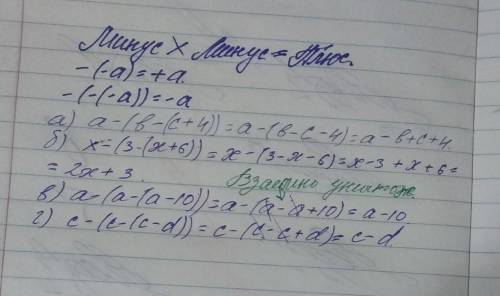 Минус × Минус = Плюс.
-(-a)=+a.
-(-(-a))=-a
а) a-(b-(c+4))=a-(b-c-4)=a-b+c+4.
б) x=(3-(x+6))=x-(3-x-6)=x-3+x+6=
=2x+3.
Взаимно уничтож
в) a-(a-(a-10))=a-(a-a+10)=a-10.
г) c-(c-(c-d))=c-(c-c+d)=c-d.